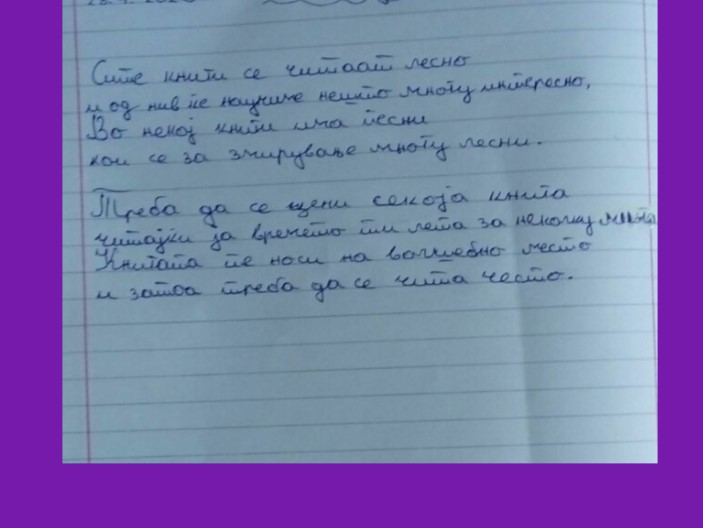 Сите книги се читаат лесно
и од нив ќе научиме нешто многу интересно,
Во некој книги има песни
кои се за змирување многу лесни.
Треба да се цени секоја книга
читајќи ја времето ти лета за неколку
Книгата те носи на волшебно место
и затоа треба да се чита често.